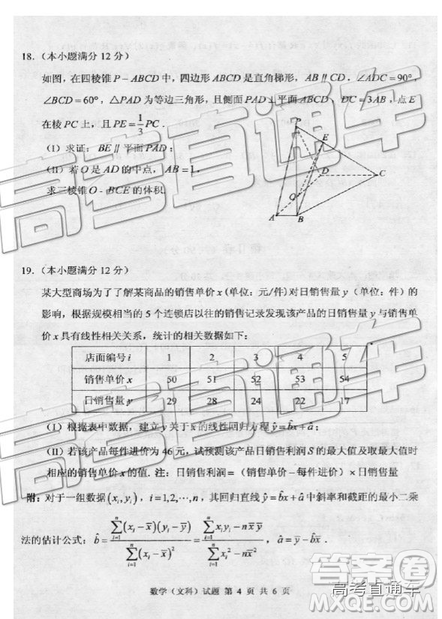 18.（本小题满分 12 分）
如图，在四棱锥 P－ABCD 中，四边形 ABCD 是直角梯形，AB∥CD，∠ADC=90°，
∠BCD=60°，△PAD 为等边三角形，且侧面 PAD⊥平面 ABCD，DC=3AB，点 E
在棱 PC 上，且 PE=1/3 PC．
(I) 求证：BE∥平面 PAD；
(II) 若 O 是 AD 的中点，AB=1，
求三棱锥 O－BCE 的体积．
P
E
D
C
O
A B
19.（本小题满分 12 分）
某大型商场为了了解某商品的销售单价 x (单位：元/件) 对日销售量 y（单位：件）的
影响，根据规模相当的 5 个连锁店以往的销售记录发现该产品的日销售量 y 与销售单
价 x 具有线性相关关系，统计的相关数据如下：
店面编号 i 1 2 3 4 5
销售单价 x 50 51 52 53 54
日销售量 y 29 28 24 22
(I) 根据表中数据，建立 y 关于 x 的线性回归方程 ŷ=b̂x+â；
(II) 若该产品每件进价为 46 元，试预测该产品日销售利润 S 的最大值及取最大值时
相应的销售单价 x 的值. 注：日销售利润=（销售单价－每件进价）×日销售量
附：对于一组数据 (xᵢ, yᵢ)，i=1,2,⋯,n，其回归直线 ŷ=b̂x+â 中斜率和截距的最小二乘
法的估计公式：b̂ = ∑(xᵢ−x̄)(yᵢ−ȳ) / ∑(xᵢ−x̄)² = ∑xᵢyᵢ−nx̄ȳ / ∑xᵢ²−nx̄²，â=ȳ−b̂x̄．
数学（文科）试题 第 4 页 共 6 页
高考直通车
高考直通车
高考直通车
高考直通车
答案圈
MXQE.COM